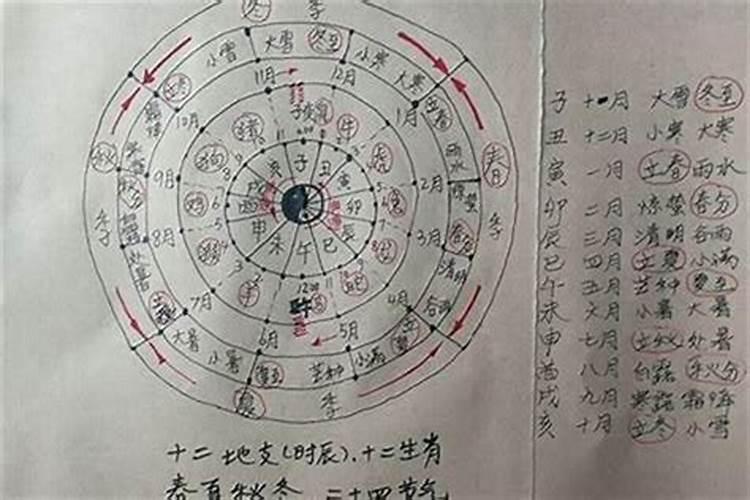 冬 季
小雪 大雪 冬至 小寒 大寒
立冬 立春
11月 12月
10月 1月
雨水
秋 春
9月 2月
惊蛰
秋分 春分
季 季
8月 3月
清明
处暑 谷雨
立秋 立夏
7月 4月
大暑 小暑 夏至 芒种 小满
6月 5月
夏 季
子 丑 寅 卯 辰 巳 午 未 申 酉 戌 亥
鼠 牛 虎 兔 蛇 羊 猴 鸡 狗 猪
子 十一月 大雪 冬至
丑 十二月 小寒 大寒
寅 一月 立春 雨水
卯 二月 惊蛰 春分
辰 三月 清明 谷雨
巳 四月 立夏 小满
午 五月 芒种 夏至
未 六月 小暑 大暑
申 七月 立秋 处暑
酉 八月 白露 秋分
戌 九月 寒露 霜降
亥 十月 立冬 小雪
十二地支(时辰)、十二生肖
春夏秋冬 二十四节气